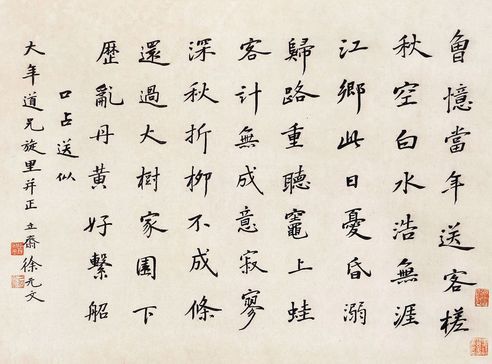 曾憶當年送客槎
秋空白水浩無涯
江鄉此日憂昏溺
歸路重聽竈上蛙
客計無成意寂寥
深秋折柳不成條
還過大樹家園下
歷亂丹黃好繫
口占送似
大年道兄旋里并正 立齋徐元文